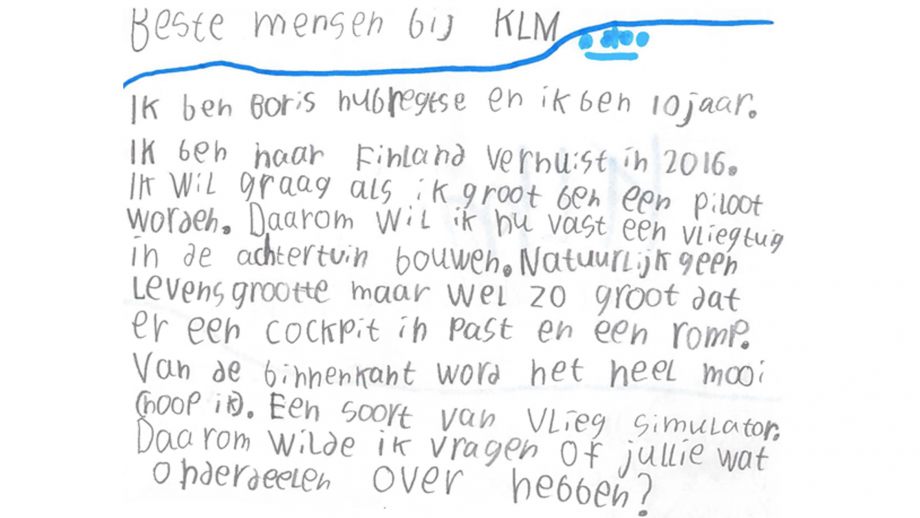 Beste mensen bij KLM
Ik ben Boris hubregtse en ik ben 10 jaar.
Ik ben naar Finland verhuist in 2016.
Ik wil graag als ik groot ben een piloot
worden. Daarom wil ik nu vast een vliegtuig
in de achtertuin bouwen. Natuurlijk geen
Levens grootte maar wel zo groot dat
er een cockpit in past en een romp.
Van de binnenkant word het heel mooi
(hoop ik). Een soort van vlieg simulator.
Daarom wilde ik vragen of jullie wat
onderdeelen over hebben?